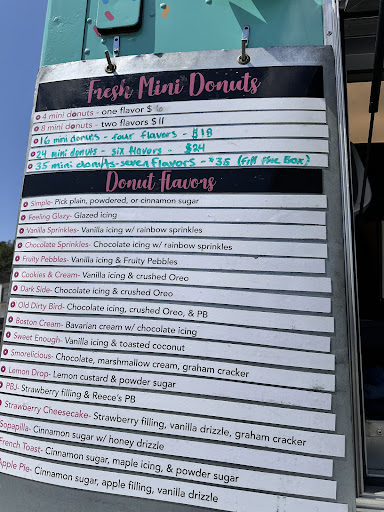 Fresh Mini Donuts
4 mini donuts - one flavor $ 6
8 mini donuts - two flavors $11
16 mini donuts - four flavors - $18
24 mini donuts - six flavors - $24
35 mini donuts - seven flavors - $35 (Fill the Box)
Donut flavors
Simple- Pick plain, powdered, or cinnamon sugar
Feeling Glazy- Glazed icing
Vanilla Sprinkles- Vanilla icing w/ rainbow sprinkles
Chocolate Sprinkles- Chocolate icing w/ rainbow sprinkles
Fruity Pebbles- Vanilla icing & Fruity Pebbles
Cookies & Cream- Vanilla icing & crushed Oreo
Dark Side- Chocolate icing & crushed Oreo
Old Dirty Bird- Chocolate icing, crushed Oreo, & PB
Boston Cream- Bavarian cream w/ chocolate icing
Sweet Enough- Vanilla icing & toasted coconut
Smorelicious- Chocolate, marshmallow cream, graham cracker
Lemon Drop- Lemon custard & powder sugar
PBJ- Strawberry filling & Reece's PB
Strawberry Cheesecake- Strawberry filling, vanilla drizzle, graham cracker
Sopapilla- Cinnamon sugar w/ honey drizzle
French Toast- Cinnamon sugar, maple icing, & powder sugar
Apple Pie- Cinnamon sugar, apple filling, vanilla drizzle